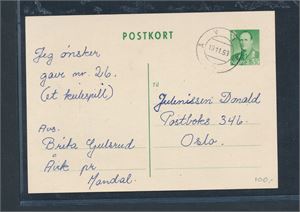 POSTKORT
Jeg ønsker
gave nr. 26.
(et kulespill)
Avs.
Brita Gulsrud
Åvik pr.
Mandal.
Til
Julenissen Donald
Postboks 346.
Oslo.
100,-